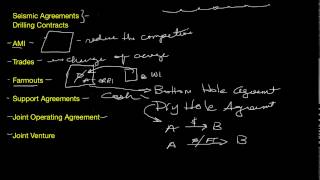 Seismic Agreements
Drilling Contracts
AMI reduce the competition
Trades exchange of acreage
Farmouts ORRI WI
Support Agreements Cash Bottom Hole Agreement
Dry Hole Agreement
Joint Operating Agreement A $ B
Joint Venture A B